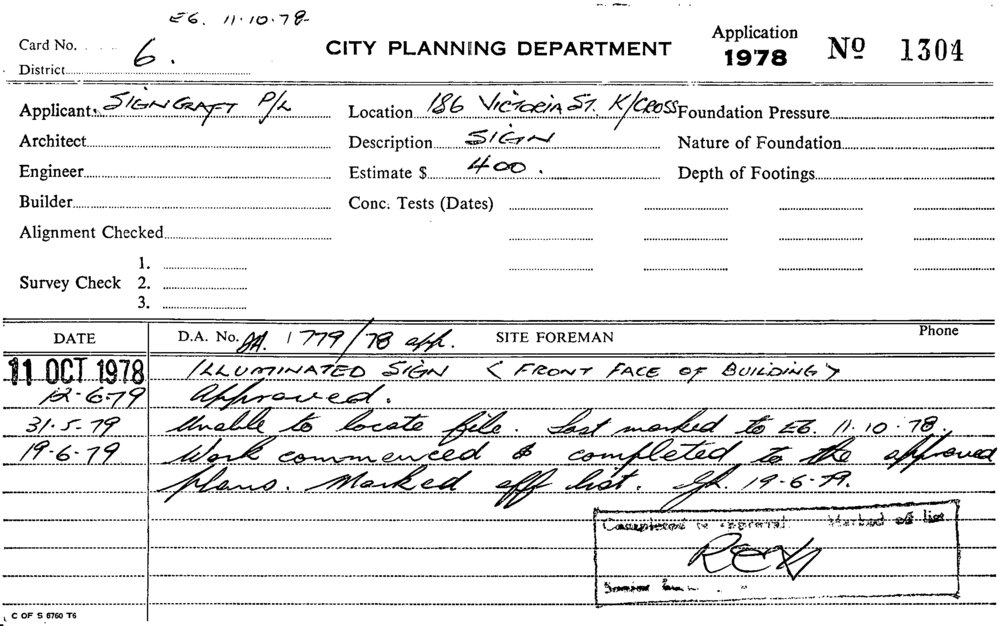 E6. 11·10·78
Card No. 6.
District
CITY PLANNING DEPARTMENT
Application
1978
No 1304
Applicant SIGNCRAFT P/L
Location 186 VICTORIA ST. K/CROSS
Foundation Pressure
Architect
Description SIGN
Nature of Foundation
Engineer
Estimate $ 400.
Depth of Footings
Builder
Conc. Tests (Dates)
Alignment Checked
Survey Check
1.
2.
3.
DATE
D.A. No. 1779/78 app.
SITE FOREMAN
Phone
11 OCT 1978 ILLUMINATED SIGN <FRONT FACE OF BUILDING>
12·6·79 Approved.
31·5·79 Unable to locate file. Last marked to E6. 11·10·78.
19·6·79 Work commenced & completed to the approved
plans. Marked off list. 19·6·79.
Completed to approval Marked of list
Senior
C OF S 6760 T6